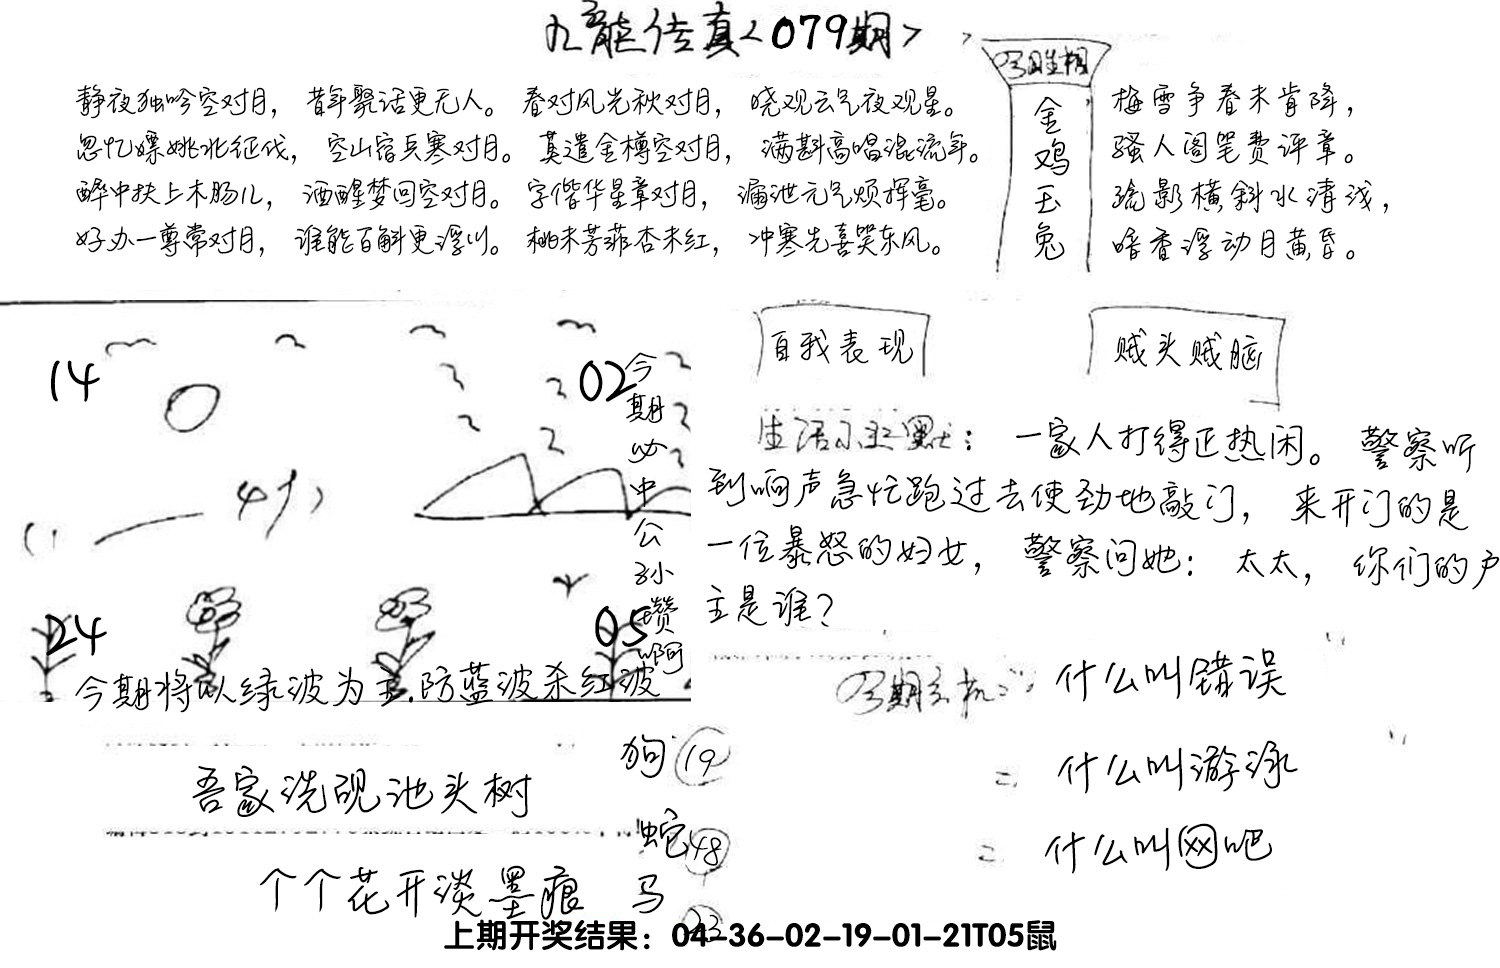 九龙传真<079期>
静夜独吟空对月，昔年聚话更无人。春对风光秋对月，晓观云气夜观星。
忽忆嫖姚北征伐，空山宿兵寒对月。莫遣金樽空对月，满斟高唱混流年。
醉中扶上木肠儿，酒醒梦回空对月。字偕华星章对月，漏泄元气烦挥毫。
好办一尊常对月，谁能百斛更浮川。桃未芳菲杏未红，冲寒先喜笑东风。
金鸡玉兔
梅雪争春未肯降，
骚人阁笔费评章。
疏影横斜水清浅，
暗香浮动月黄昏。
自我表现
贼头贼脑
14
02
24
05
今期必中公孙瓒啊
今期将以绿波为主.防蓝波杀红波
生活幽默：一家人打得正热闹。警察听
到响声急忙跑过去使劲地敲门，来开门的是
一位暴怒的妇女，警察问她：太太，你们的户
主是谁？
什么叫错误
什么叫游泳
什么叫网吧
吾家洗砚池头树
个个花开淡墨痕
狗 19
蛇 48
马 23
上期开奖结果：04-36-02-19-01-21T05鼠